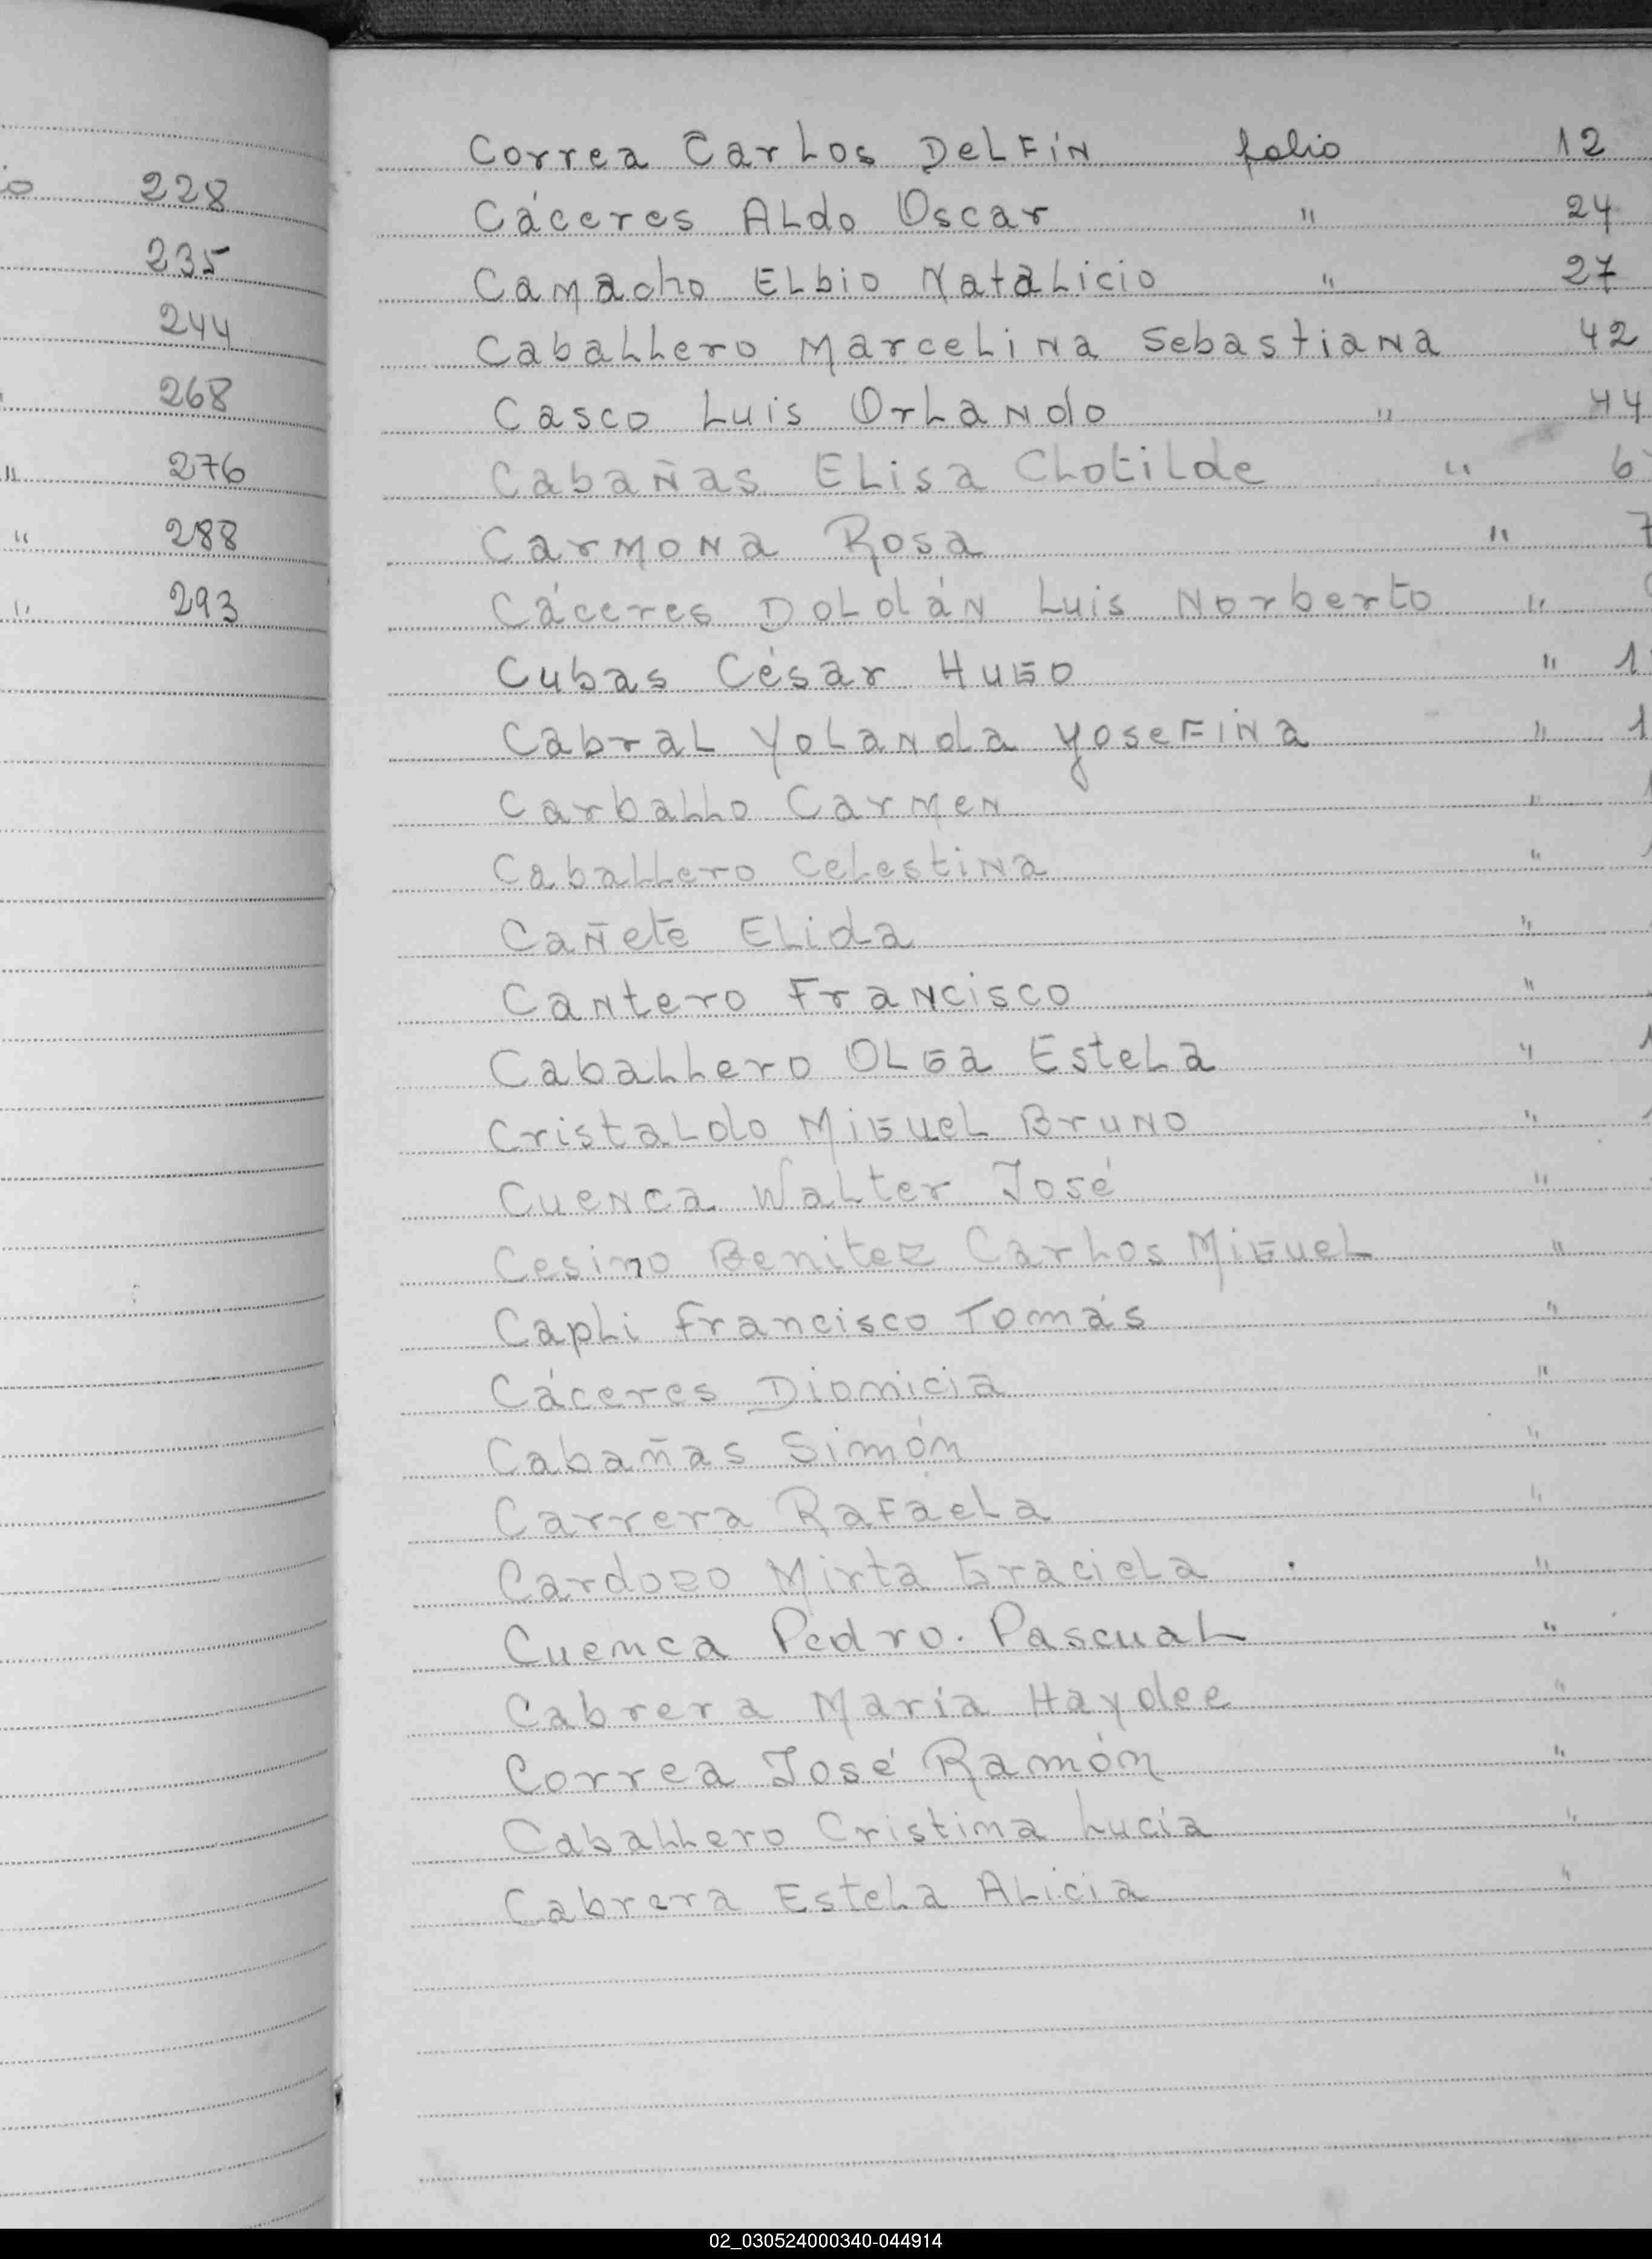 io 228
235
244
268
" 276
" 288
" 293
Correa Carlos Delfín folio 12
Cáceres Aldo Oscar " 24
Camacho Elbio Natalicio " 27
Caballero Marcelina Sebastiana 42
Casco Luis Orlando " 44
Cabañas Elisa Clotilde " 6
Carmona Rosa " 7
Cáceres Doldán Luis Norberto "
Cubas César Hugo " 1
Cabral Yolanda Yosefina " 1
Carballo Carmen " 1
Caballero Celestina " 1
Cañete Elida "
Cantero Francisco "
Caballero Olga Estela " 1
Cristaldo Miguel Bruno "
Cuenca Walter José "
Cesino Benitez Carlos Miguel "
Capli Francisco Tomás "
Cáceres Dionicia "
Cabañas Simón "
Carrera Rafaela "
Cardozo Mirta Graciela "
Cuenca Pedro. Pascual "
Cabrera María Haydee "
Correa José Ramón "
Caballero Cristina Lucía "
Cabrera Estela Alicia "
02_030524000340-044914